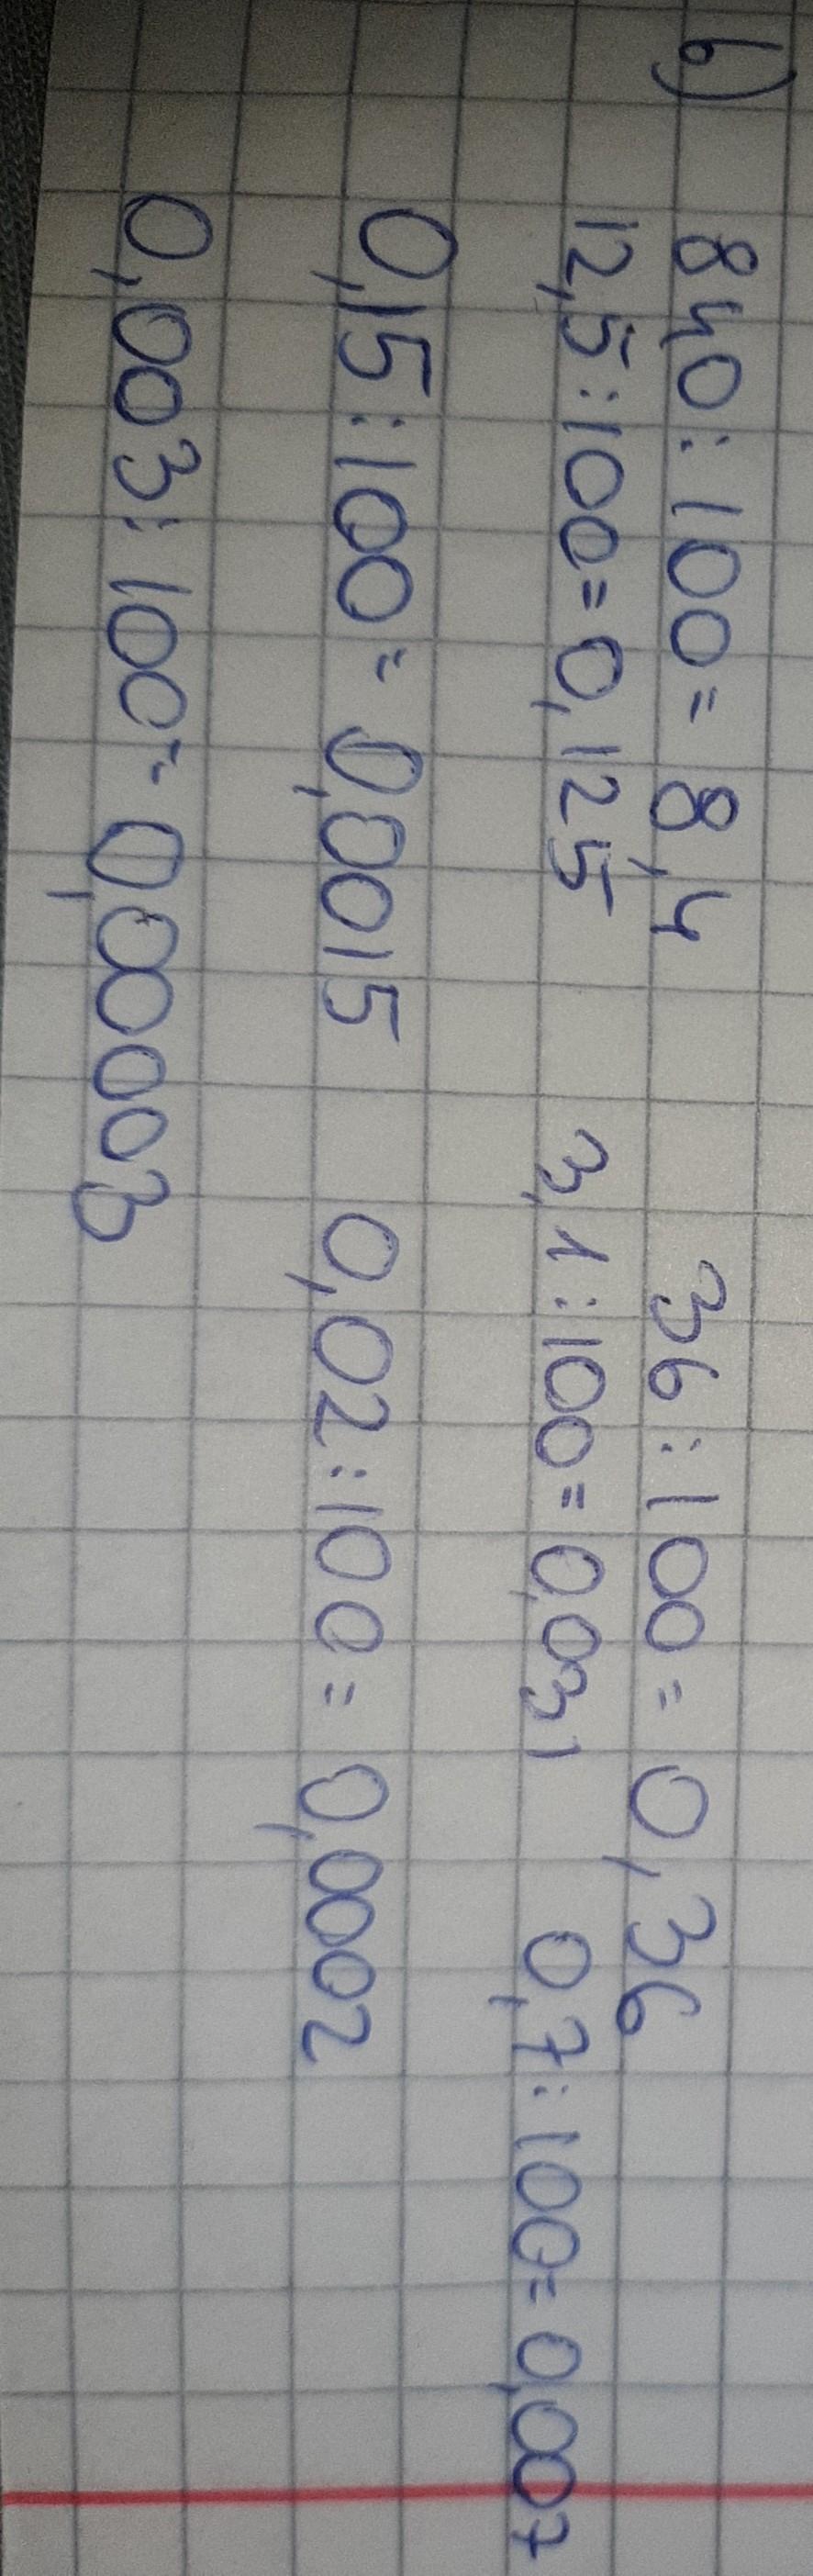 b) 840:100=8,4 36:100=0,36
12,5:100=0,125 3,1:100=0,031 0,7:100=0,007
0,15:100=0,0015 0,02:100=0,0002
0,003:100=0,00003